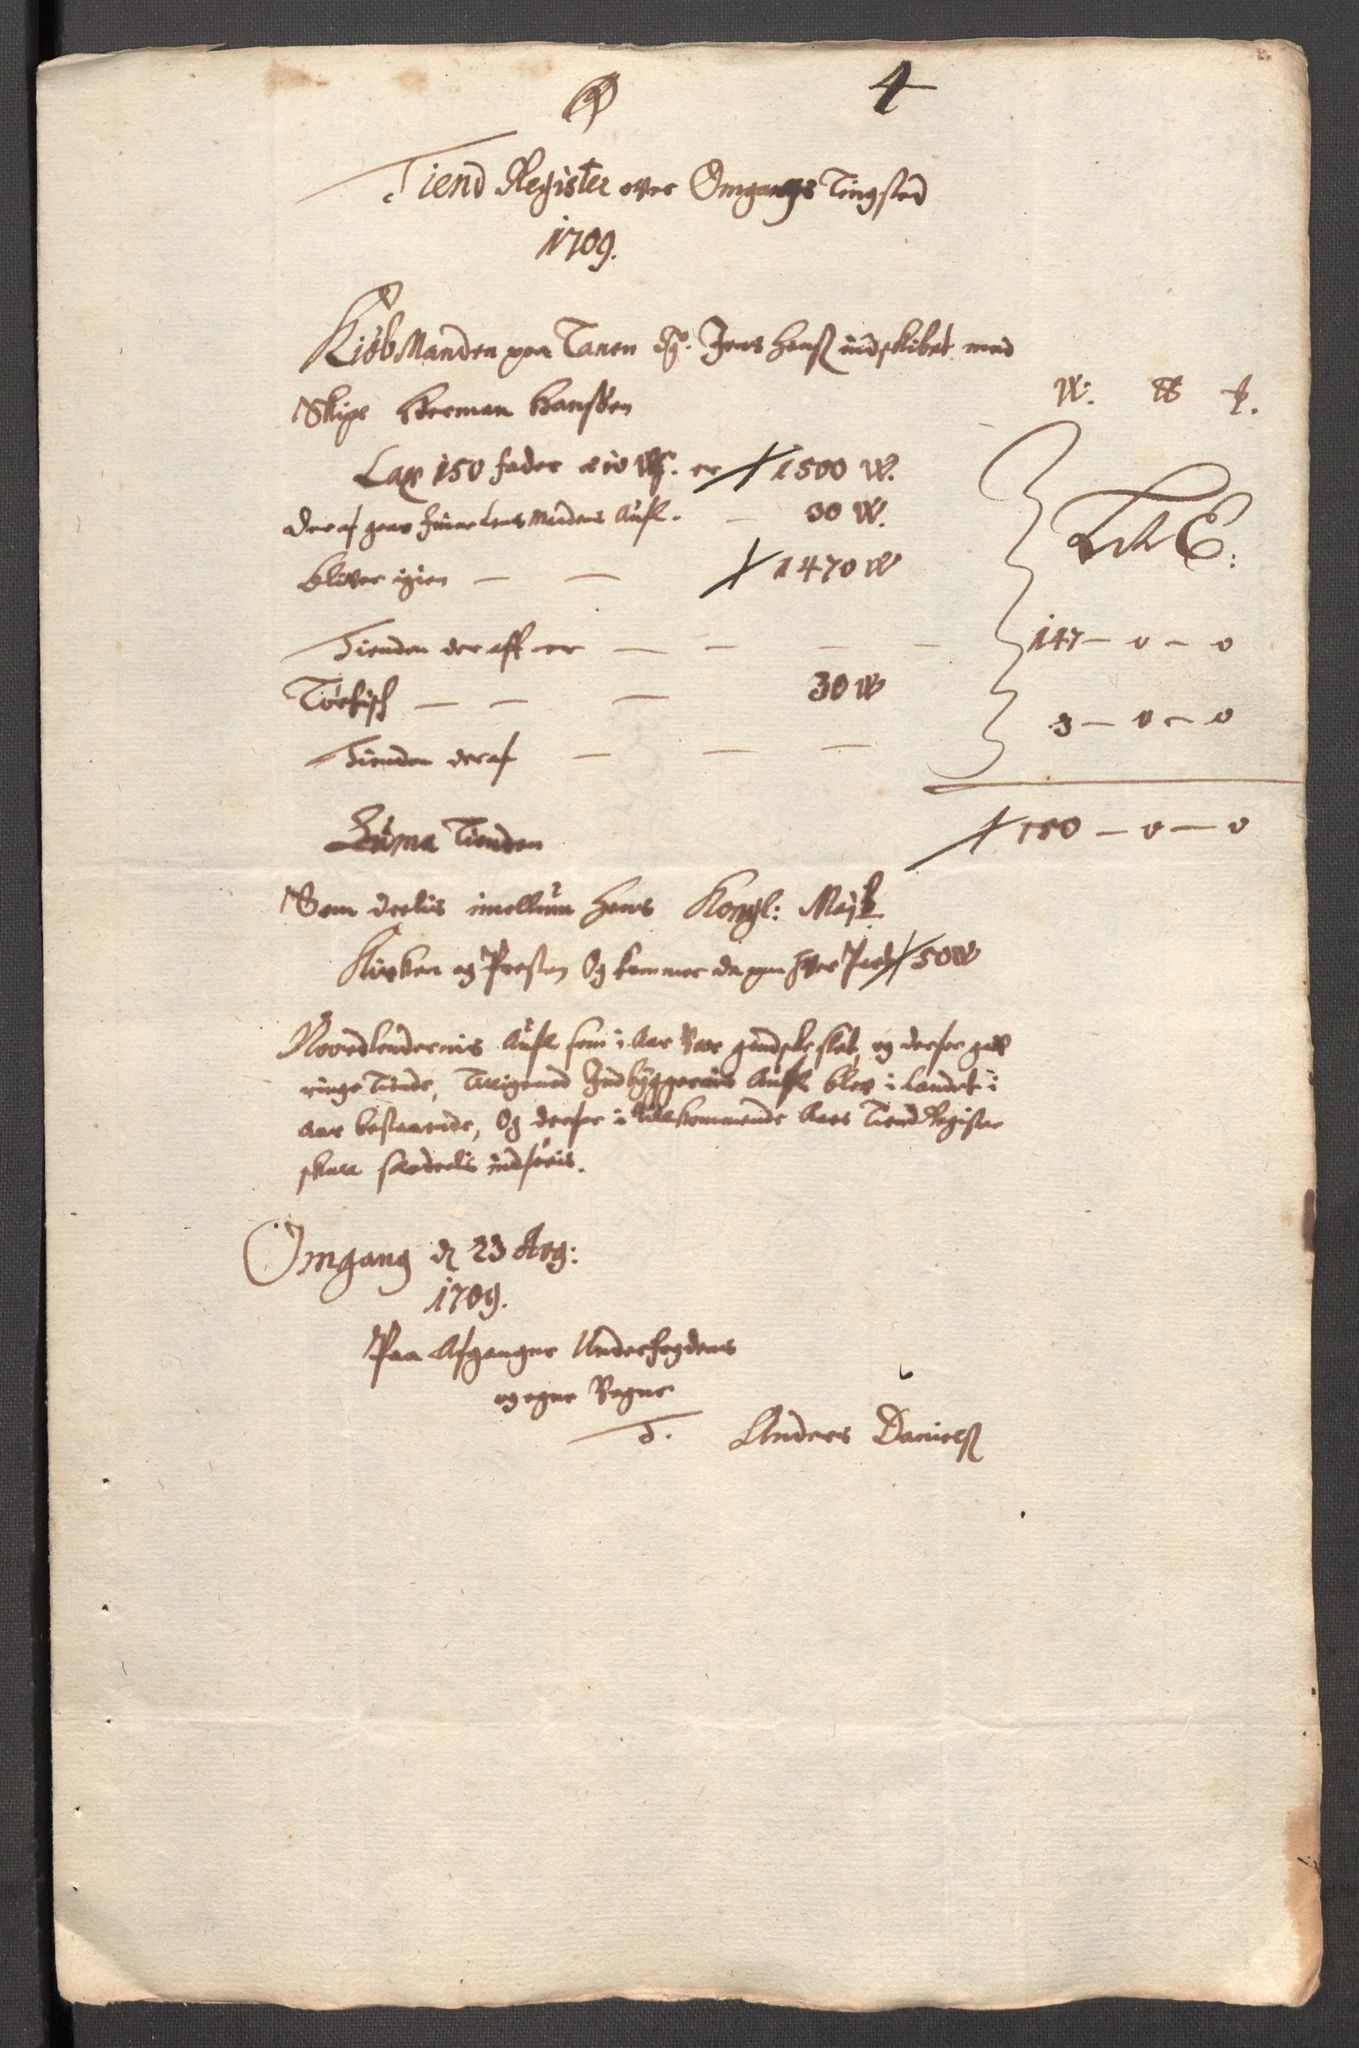 4
Tiend Register over Omgangs Tingsted
1709.
Kiöbmanden paa Tanen Sr. Jens Hanss: indskibet med
Skipr Herman Hanssen
W. tt
Lax 150 fader a 10 Wg. er 1500 W.
der af gaar finne Lensmandens Aufl. — 30 W.
bliver igien — — 1470 W
Tienden der aff er — — — — 147 — 0 — 0
Törfisch — — — 30 W
Tienden deraf — — — 3 — 0 — 0
Suma Tienden 150 — 0 — 0
Som deelis imellum hans Kongl: Mayt.
Kirken og Presten Og kommer da paa hver Part 50 W
Nordlendernis Aufl som i Aar var gandske slet, og derfor gav
ringe Tiende, Tilligemed Indbyggernis Aufl blev i Landet i
Aar bestaaende, Og derfor i tilkommende Aars Tiend Register
skall særdeelis indföris.
Omgang d 23 Aug:
1709.
Paa Afgangne Underfogdens
og egne Vegne
T. Anders Danielss